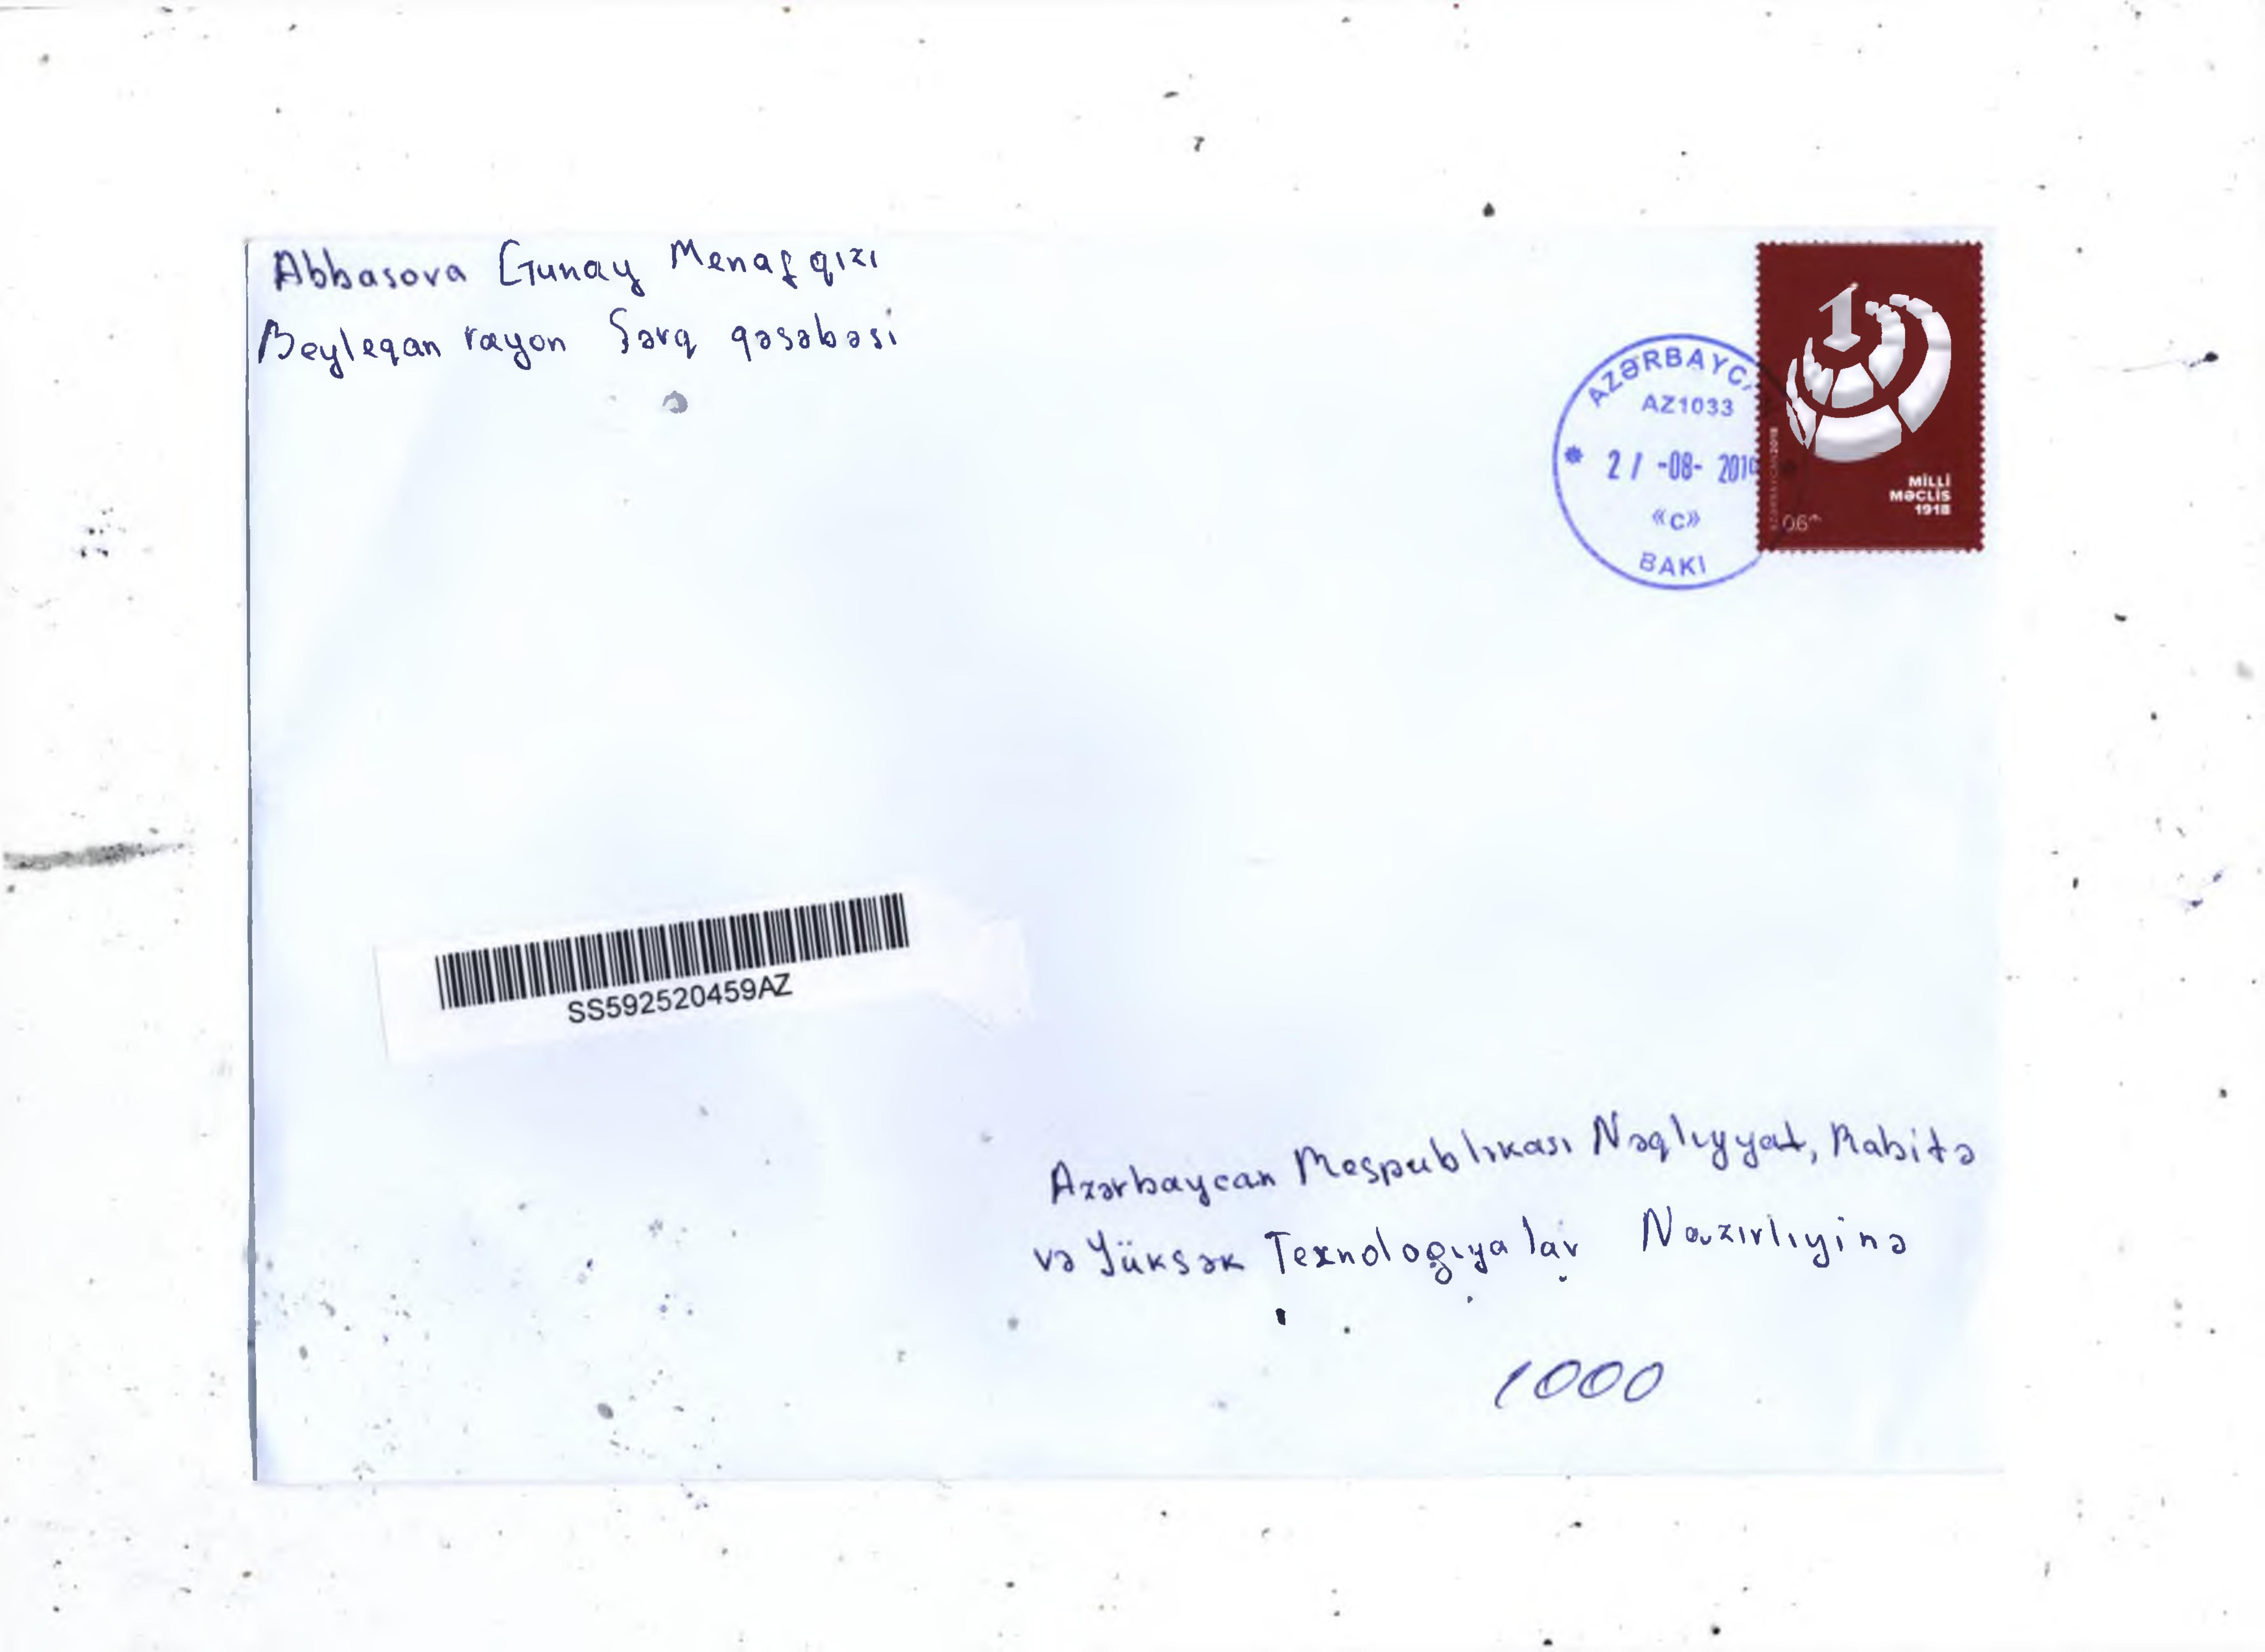 Abbasova Gunay Menaf qızı
Beyleqan rayon Şərq qəsəbəsi
AZƏRBAYC
AZ1033
-08- 201
«c»
BAKI
AZƏRBAYCAN2018
MİLLİ
MƏCLİS
1918
0.6
SS592520459AZ
Azərbaycan Respublıkası Nəqlıyyat, Rabitə
və Yüksək Texnologıyalar Nazırlıyinə
1000